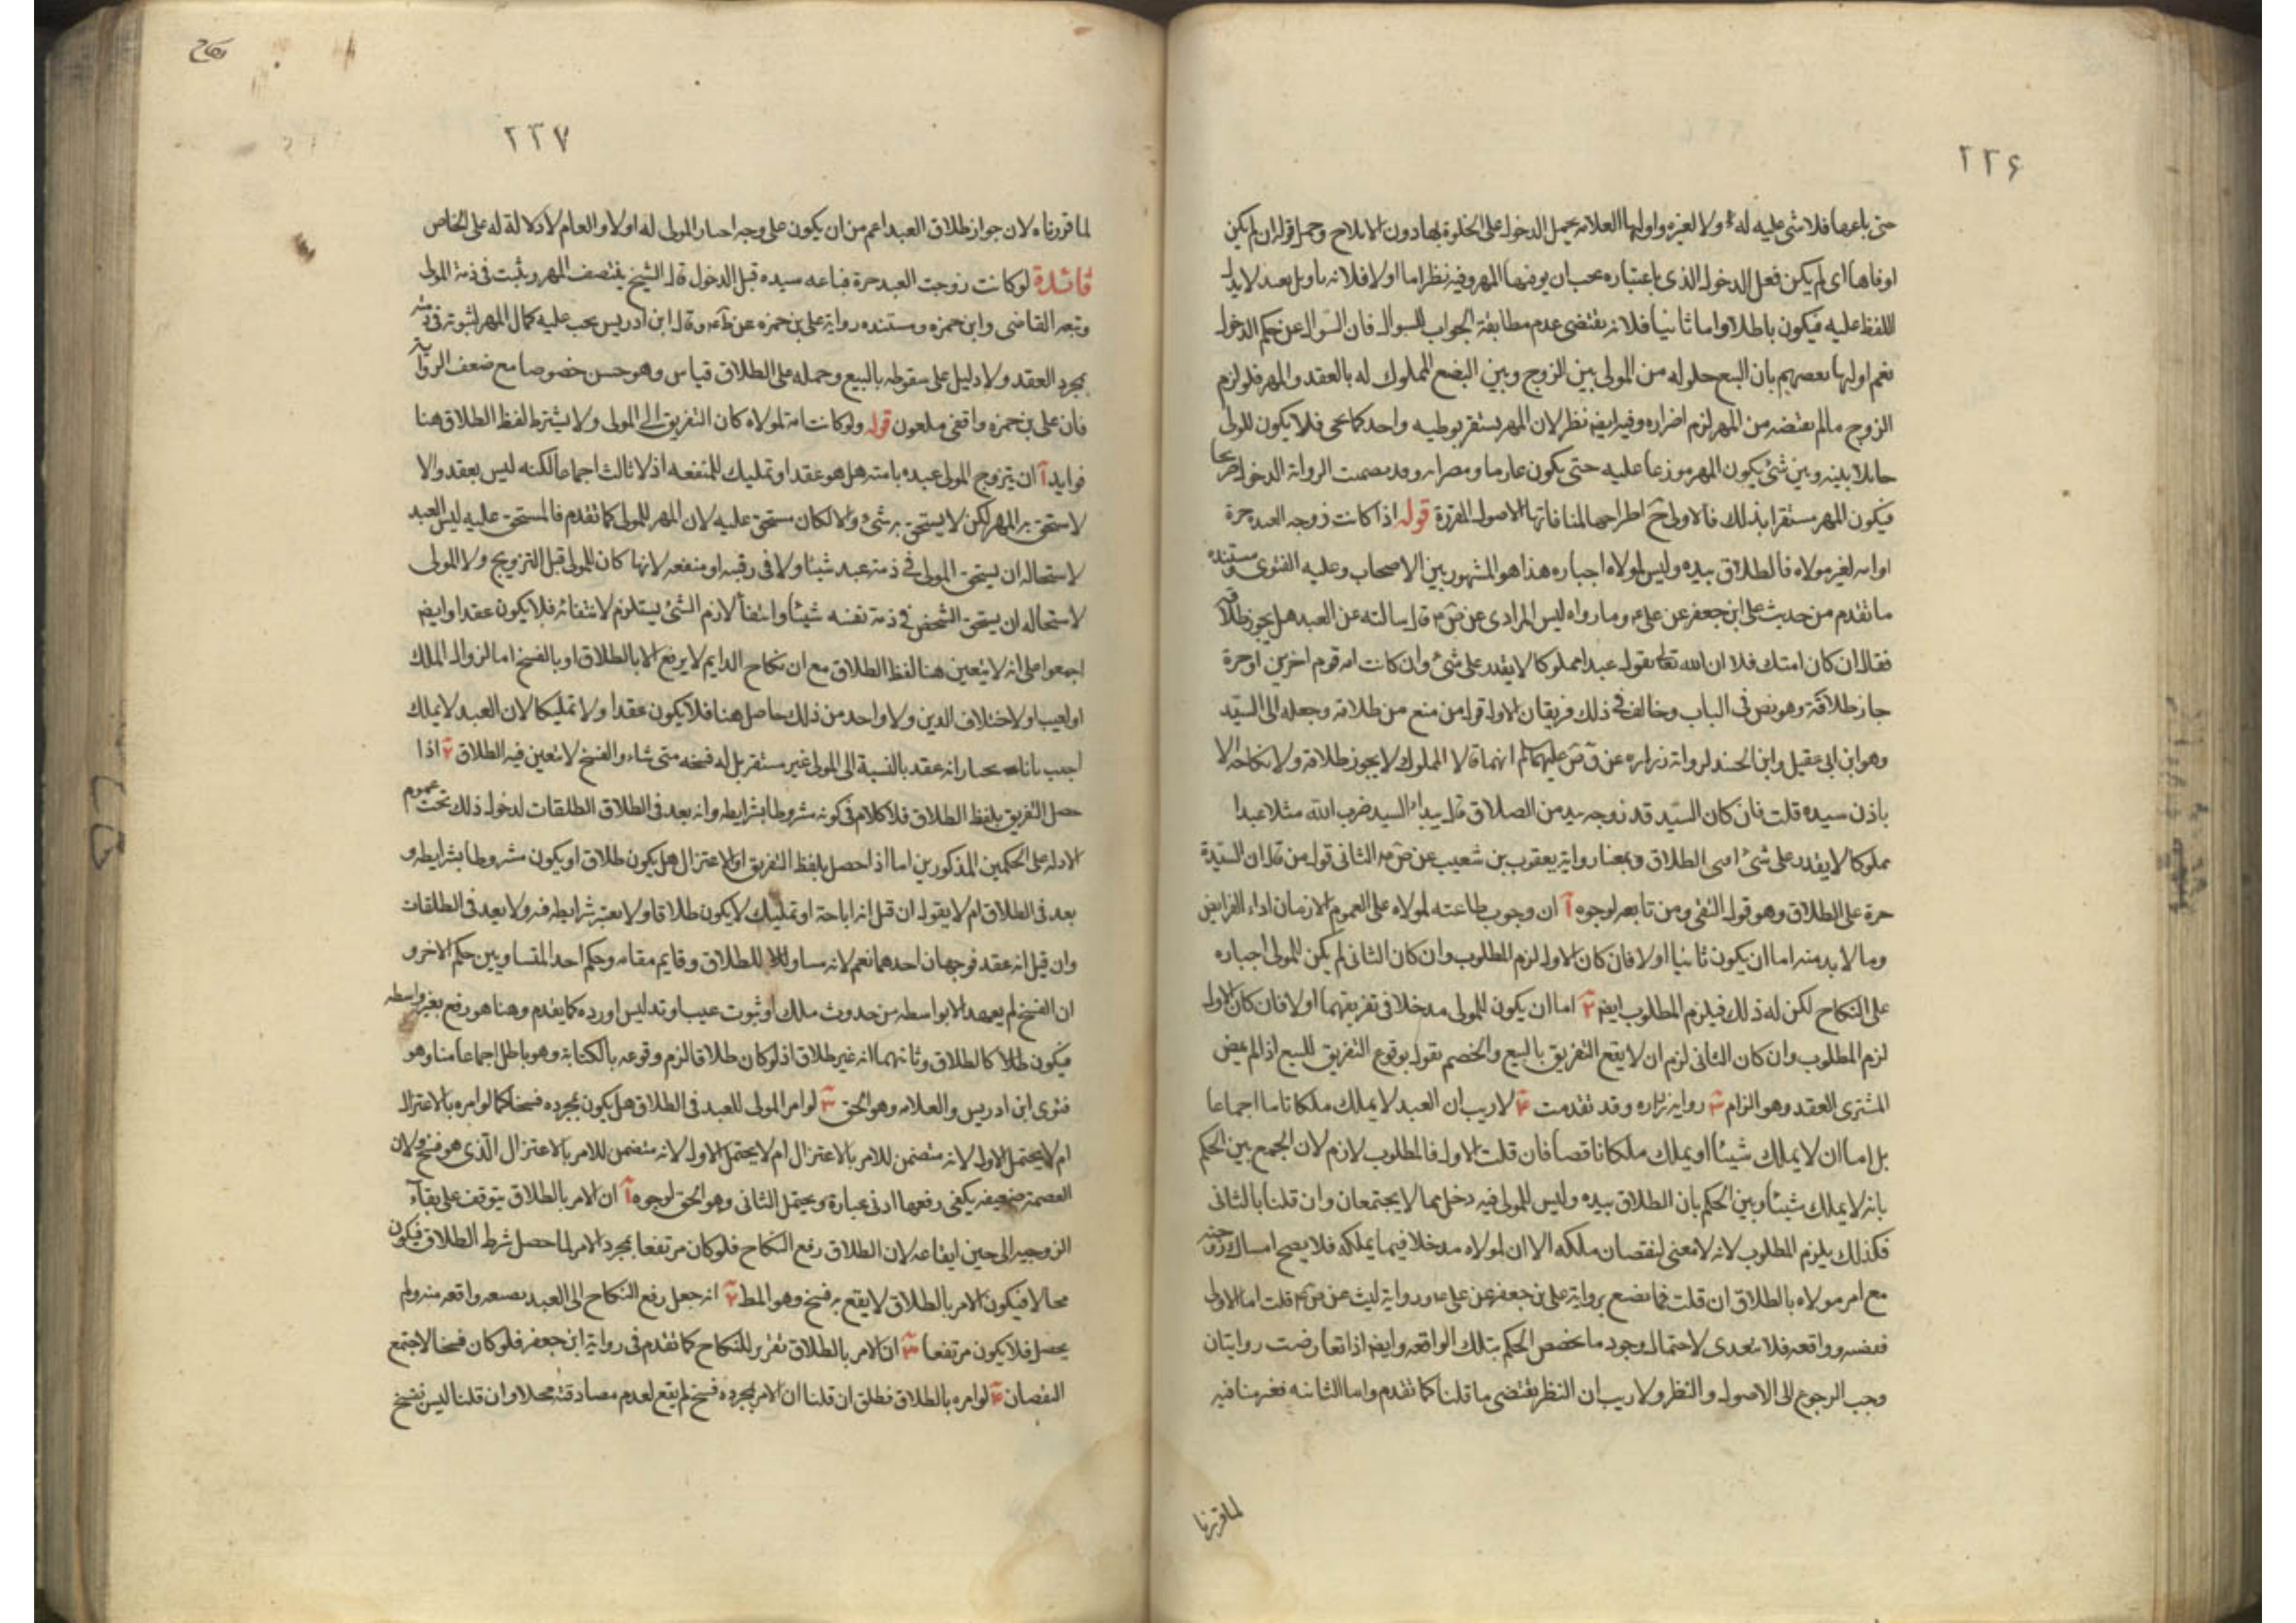 ٢٢۶
حتى باعها فلا شئ عليه له ولا لغيره واولها العلامه بحمل الدخول على الخلوة بها دون الايلاج وحمل قوله ان لم يكن
اوفاها اى لم يكن فعل الدخول الذى باعتباره يجب ان يوفيها المهر وفيه نظر اما اولا فلانه تاويل بعيد لا يدل
اللفظ عليه فيكون باطلا واما ثانيا فلانه يقتضى عدم مطابقة الجواب للسوال فان السوال عن حكم الدخول
نعم اولها بعضهم بان البيع حلوله من المولى بين الزوج وبين البضع المملوك له بالعقد والمهر فلو لزم
الزوج ما لم يقبضه من المهر لزم اضراره وفيه ايضا نظر لان المهر يستقر بوطيه واحد كما يجى فلا يكون للمولى
حايلا بينه وبين شئ يكون المهر موزعا عليه حتى يكون غارما ومضرا به وقد تضمنت الرواية الدخول صريحا
فيكون المهر مستقرا بذلك فالاولى ح اطراحها لمنافاتها الاصول المقررة قوله اذا كانت زوجه العبد حرة
او امه لغير مولاه فالطلاق بيده وليس لمولاه اجباره هذا هو المشهور بين الاصحاب وعليه الفتوى ومستنده
ما تقدم من حديث على ابن جعفر عن على ع وما رواه ليس المرادى عن ص ع قال سالته عن العبد هل يجوز طلاقه
فقال ان كان امتك فلا ان الله تعالى يقول عبدا مملوكا لا يقدر على شئ وان كانت امه قوم اخرين او حرة
جاز طلاقة وهو نص فى الباب وخالف فى ذلك فريقان الاول قول من منع من طلاقه وجعله الى السيّد
وهو ابن ابى عقيل وابن الجنيد لرواية زراره عن ق ص عليهما السلم انهما قالا المملوك لا يجوز طلاقه ولا نكاحه الا
باذن سيده قلت فان كان السيّد قد زوجه بيد من الطلاق قال بيد السيد ضرب الله مثلا عبدا
مملوكا لا يقدر على شئ اشى الطلاق وبمعنا رواية يعقوب بن شعيب عن ص ع الثانى قول من قال ان للسيد
جبره على الطلاق وهو قول التقى ومن تابعه لوجوه آ ان وجوب طاعته لمولاه على العموم الا زمان اداء الفرايض
وما لا بد منه اما ان يكون ثانيا اولا فان كان الاول لزم المطلوب وان كان الثانى لم يكن للمولى اجباره
على النكاح لكن له ذلك فيلزم المطلوب ايضا ٢ اما ان يكون للمولى مدخلا فى تفريقهما اولا فان كان الاول
لزم المطلوب وان كان الثانى لزم ان لا يقع التفريق بالبيع والخصم يقول بوقوع التفريق للبيع اذا لم يمض
المشترى العقد وهو الزام ٣ رواية زراره وقد تقدمت ۴ لا ريب ان العبد لا يملك ملكا تاما اجماعا
بل اما ان لا يملك شيئا او يملك ملكا ناقصا فان قلت الاول فالمطلوب لازم لان الجمع بين الحكم
بانه لا يملك شيئا وبين الحكم بان الطلاق بيده وليس للمولى فيه دخل مما لا يجتمعان وان قلنا بالثانى
فكذلك يلزم المطلوب لانه لا معنى لنقصان ملكه الا ان لمولاه مدخلا فيما يملكه فلا يصح امساك زوجته
مع امر مولاه بالطلاق ان قلت فما تصنع برواية على بن جعفر عن على ع ورواية ليث عن ص ع قلت اما الاولى
فقضيه وواقعه فلا يتعدى لاحتمال وجود ما يخصص الحكم بتلك الواقعه وايضا اذا تعارضت روايتان
وجب الرجوع الى الاصول والنظر ولا ريب ان النظر يقتضى ما قلنا كما تقدم واما الثانيه فغير منافيه
لما قررنا
نكاح
٢٣٧
لما قررناه لان جواز طلاق العبد اعم من ان يكون على وجه اجبار المولى له اولا والعام لا دلالة له على الخاص
فائدة لو كانت زوجت العبد حرة فباعه سيده قبل الدخول قال الشيخ ينتصف المهر ويثبت فى ذمة المولى
وتبعه القاضى وابن حمزه ومستنده رواية على بن حمزه عن ظم ع وقال ابن ادريس يجب عليه كمال المهر لثبوته فى ذمته
بمجرد العقد ولا دليل على سقوطه بالبيع وحمله على الطلاق قياس وهو حسن خصوصا مع ضعف الرواية
فان على بن حمزه واقفى ملعون قوله ولو كانت امة لمولاه كان التفريق الى المولى ولا يشترط لفظ الطلاق هنا
فوايد آ ان يتزوج المولى عبده بامته هل هو عقد او تمليك للمنفعه اذ لا ثالث اجماعا لكنه ليس بعقد والا
لاستحق به المهر لكن لا يستحق به شئ والا لكان مستحق عليه لان المهر للمولى كما تقدم فالمستحق عليه ليس العبد
لاستحاله ان يستحق المولى فى ذمة عبده شيئا ولا فى رقبته او منفعه لانها كان للمولى قبل التزويج ولا المولى
لاستحاله ان يستحق الشخص فى ذمة نفسه شيئا وانتفأ لازم الشئ يستلزم لانتفائه فلا يكون عقدا وايضا
اجمعوا على انه لا يتعين هنا لفظ الطلاق مع ان نكاح الدايم لا يرفع الا بالطلاق او بالفسخ اما لزوال الملك
او لعيب او لاختلاف الدين ولا واحد من ذلك حاصل هنا فلا يكون عقدا ولا تمليكا لان العبد لا يملك
اجيب بانا نختار انه عقد بالنسبة الى المولى غير مستقر بل له فسخه متى شاء والفسخ لا يتعين فيه الطلاق ٢ اذا
حصل التفريق بلفظ الطلاق فلا كلام فى كونه مشروطا بشرايطه وانه يعد فى الطلاق الطلقات لدخول ذلك تحت عموم
الادله على الحكمين المذكورين اما اذا حصل بلفظ التفريق او الاعتزال هل يكون طلاق او يكون مشروطا بشرايطه و
يعد فى الطلاق ام لا يقول ان قيل انه اباحة او تمليك لا يكون طلاقا ولا يعتبر شرايطه فيه ولا يعد فى الطلقات
وان قيل انه عقد فوجهان احدهما نعم لانه مساو للطلاق وقايم مقامه وحكم احد المتساويين حكم الاخر و
ان الفسخ لم يعهد الا بواسطه من حدوث ملك او ثبوت عيب او تدليس او رده كما يقدم وهنا هو رفع بغير واسطه
فيكون طلاقا كالطلاق وثانيهما انه غير طلاق اذ لو كان طلاقا لزم وقوعه بالكناية وهو باطل اجماعا منا وهو
فتوى ابن ادريس والعلامه وهو الحق ٣ لو امر المولى للعبد فى الطلاق هل يكون بمجرده فسخا كما لو امره بالاعتزال
ام لا يحتمل الاول لانه متضمن للامر بالاعتزال ام لا يحتمل الاول لانه متضمن للامر بالاعتزال الّذى هو فسخ ولان
العصمة ضعيفه يكفى رفعها ادنى عبارة ويحتمل الثانى وهو الحق لوجوه آ ان الامر بالطلاق يتوقف على بقآء
الزوجيه الى حين ايقاعه لان الطلاق رفع النكاح فلو كان مرتفعا بمجرد الامر لما حصل شرط الطلاق فيكون
محالا فيكون الامر بالطلاق لا يقع به فسخ وهو المط ٢ انه جعل رفع النكاح الى العبد بصيغه واقعه منه ولم
يحصل فلا يكون مرتفعا ٣ ان الامر بالطلاق تقرير للنكاح كما تقدم فى رواية ابن جعفر فلو كان فسخا لاجتمع
النقيضان ۴ لو امره بالطلاق فطلق ان قلنا ان الامر بمجرده فسخ لم يقع لعدم مصادقته محلا وان قلنا ليس بفسخ